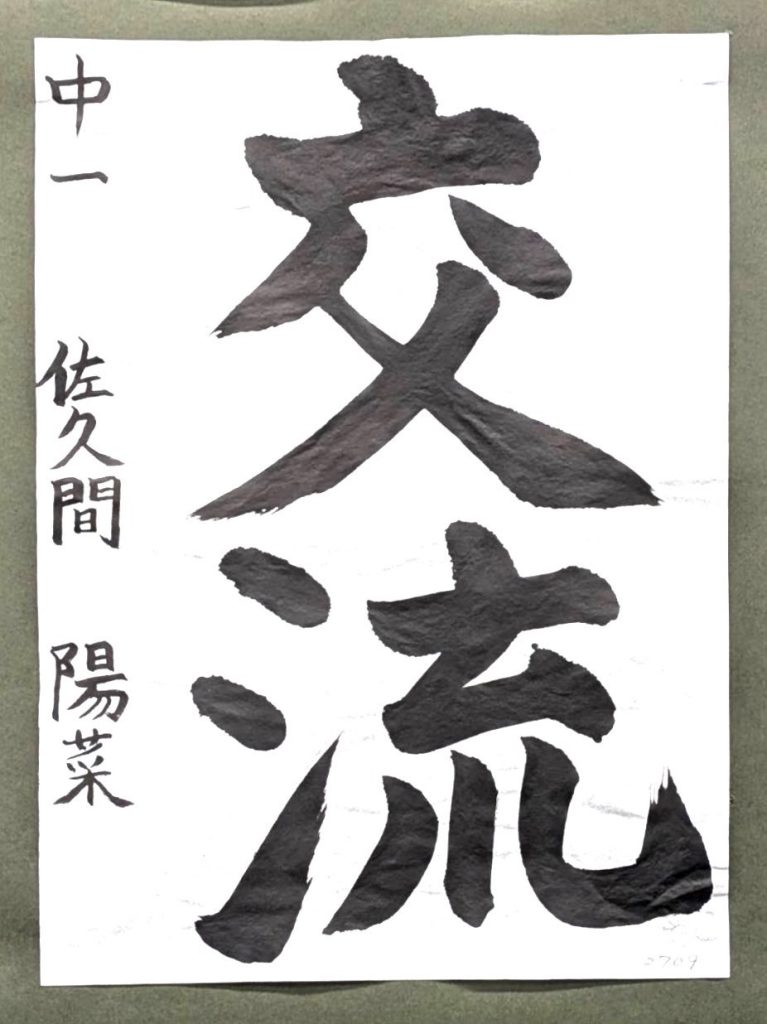 交流
中一 佐久間 陽菜
2709